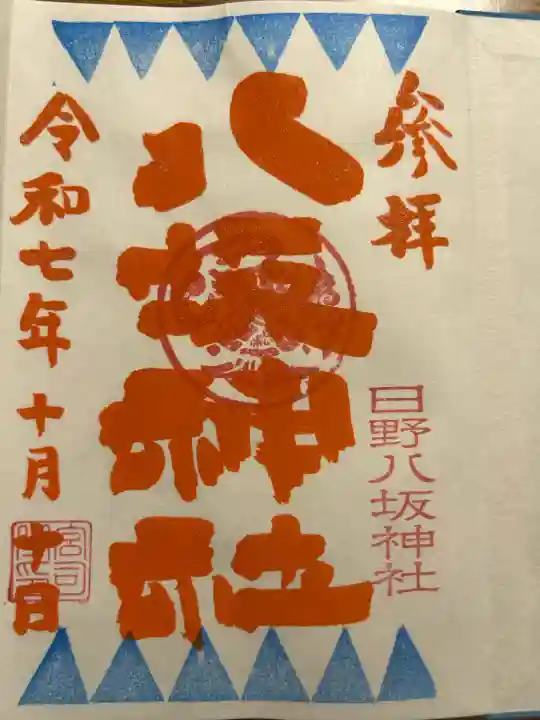 参拝
日野八坂神社
八坂神社
令和七年十月十日
宮司